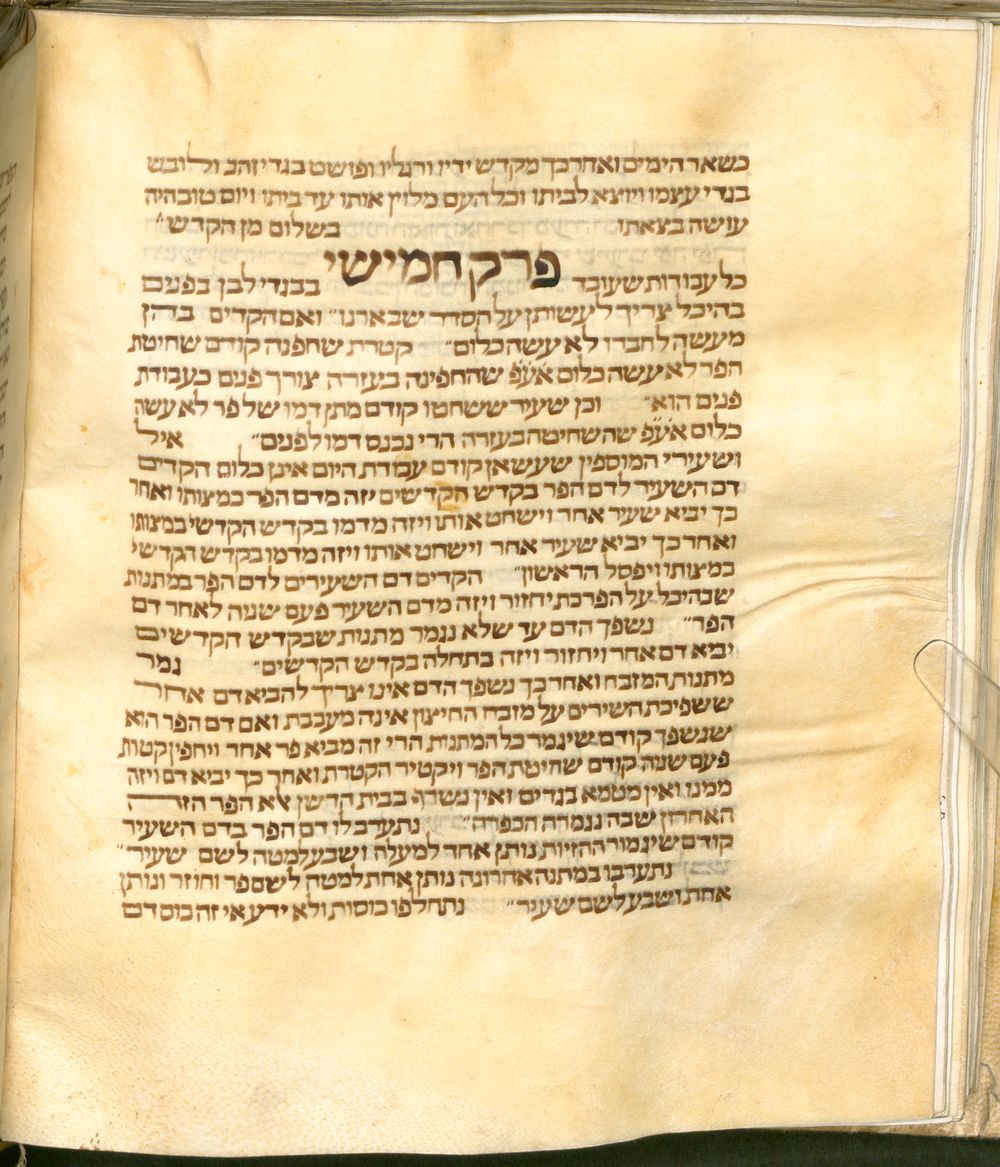 כשאר הימים ואחר כך מקדש ידיו ורגליו ופושט בגדי זהב ולובש
בגדי עצמו ויוצא לביתו וכל העם מלוין אותו עד ביתו ויום טוב היה
עושה בצאתו בשלום מן הקדש״
פרק חמישי
כל עבודות שעובד בבגדי לבן בפנים
בהיכל צריך לעשותן על הסדר שבארנו״ ואם הקדים בהן
מעשה לחברו לא עשה כלום״ קטרת שחפנה קודם שחיטת
הפר לא עשה כלום אע״פ שהחפינה בעזרה צורך פנים כעבודת
פנים הוא״ וכן שעיר ששחטו קודם מתן דמו של פר לא עשה
כלום אע״פ שהשחיטה בעזרה הרי נכנס דמו לפנים״ איל
ושעירי המוספין שעשאן קודם עבודת היום אינן כלום הקדים
דם השעיר לדם הפר בקדש הקדשים יזה מדם הפר כמצותו ואחר
כך יביא שעיר אחר וישחט אותו ויזה מדמו בקדש הקדשי׳ כמצותו
ואחר כך יביא שעיר אחר וישחט אותו ויזה מדמו בקדש הקדשי׳
כמצותו ויפסל הראשון״ הקדים דם השעירים לדם הפר במתנות
שבהיכל על הפרכת יחזור ויזה מדם השעיר פעם שניה לאחר דם
הפר״ נשפך הדם עד שלא נגמר מתנות שבקדש הקדשים
יביא דם אחר ויחזור ויזה בתחלה בקדש הקדשים״ גמר
מתנות המזבח ואחר כך נשפך הדם אינו צריך להביא דם אחר
ששפיכת השירים על מזבח החיצון אינה מעכבת ואם דם הפר הוא
שנשפך קודם שיגמר כל המתנות הרי זה מביא פר אחר ויחפין קטרת
פעם שניה קודם שחיטת הפר ויקטיר הקטרת ואחר כך יביא דם ויזה
ממנו ואין מטמא בגדים ואין נשרף בבית הדשן לא הפר הזה
האחרון שבה נגמרה הכפרה״ נתערב לו דם הפר בדם השעיר
קודם שיגמור ההזיות נותן אחד למעלה ושבע למטה לשם שעיר״
נתערבו במתנה אחרונה נותן אחת למטה לשם פר וחוזר ונותן
אחת ושבע לשם שעיר״ נתחלפו כוסות ולא ידע אי זה כוס דם